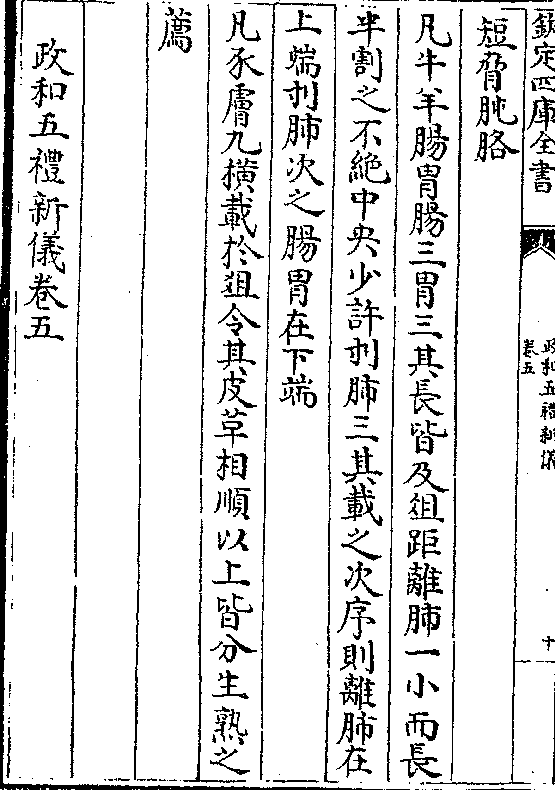 欽定四庫全書
政和五禮新儀
卷五
十
短脅肫胳
凡牛羊腸胃腸三胃三其長皆及俎距離肺一小而長
半割之不絶中央少許刌肺三其載之次序則離肺在
上端刌肺次之腸胃在下端
凡豕膚九横載於俎令其皮革相順以上皆分生熟之
薦
政和五禮新儀卷五